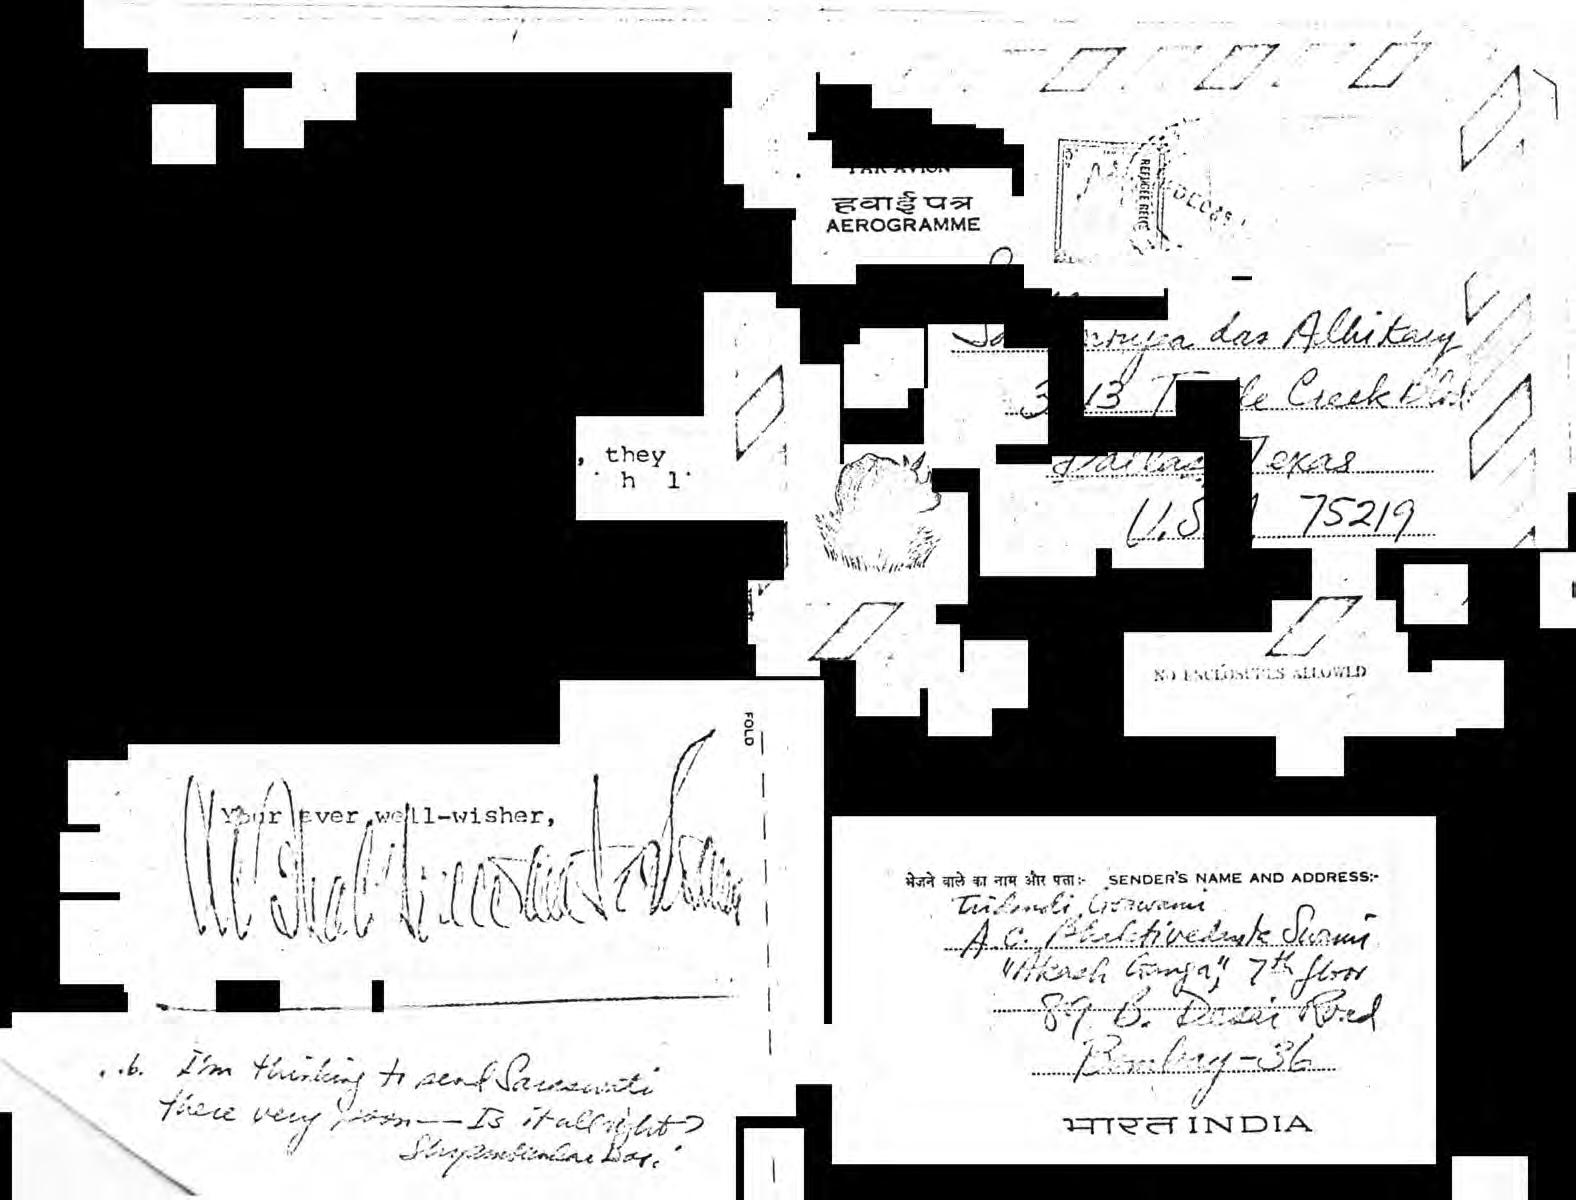 हवाई पत्र
AEROGRAMME
REFUGEE RELIEF
DEC
das Adhikary
Creek Blvd
Dallas, Texas
75219
, they
NO ENCLOSURES ALLOWED
FOLD
Your ever well-wisher,
भेजने वाले का नाम और पता:- SENDER'S NAME AND ADDRESS:-
Tridandi Goswami
A.C. Bhaktivedanta Swami
"Akash Ganga", 7th floor
89 B. Desai Road
Bombay-36
भारत INDIA
I'm thinking to send Saraswati
there very soon — Is it allright?